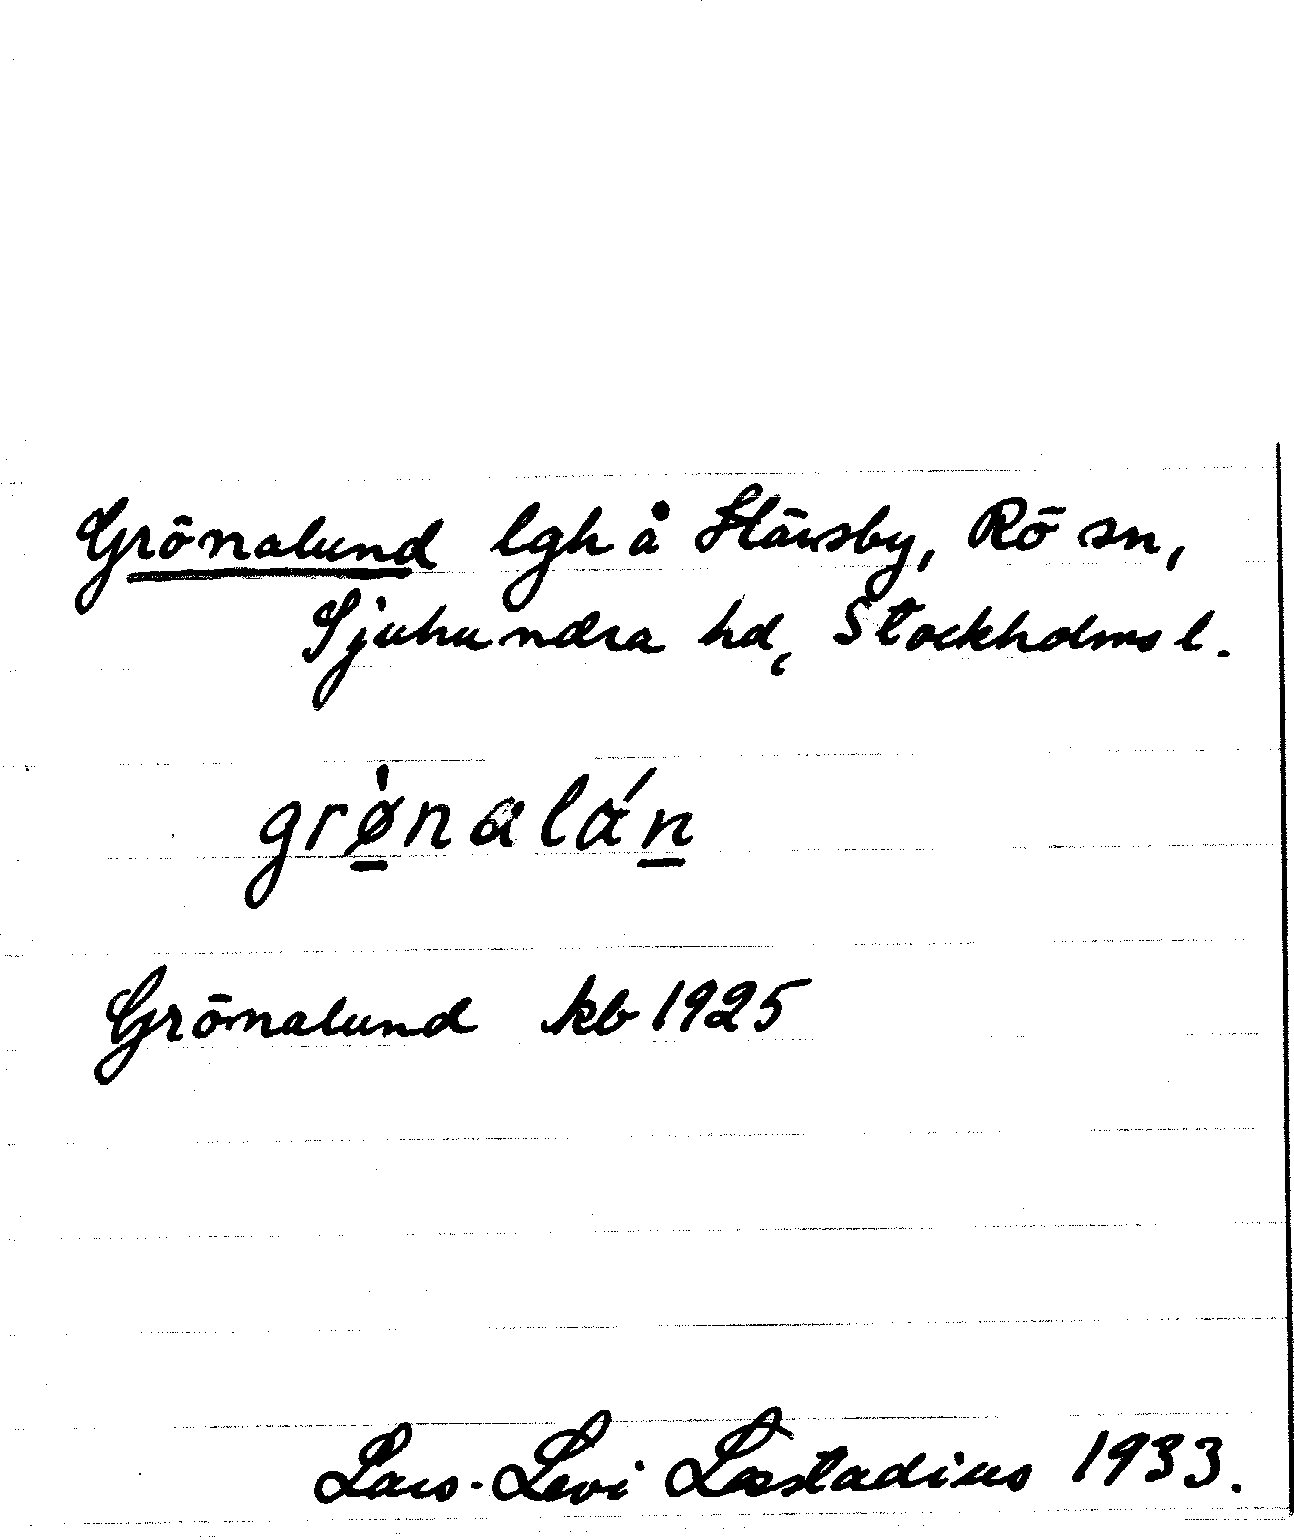 Grönalund lgh å Häusby, Rö sn,
Sjuhundra hd, Stockholms l.
grø̀nalán
Grönalund kb 1925
Lars-Levi Læstadius 1933.